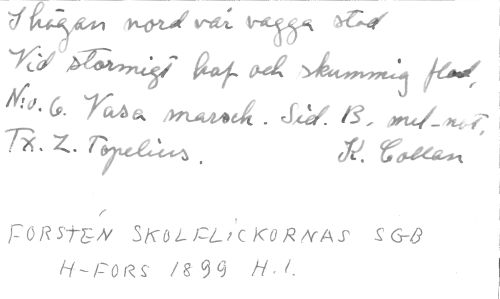 I högan nord vår vagga stod
Vid stormigt haf och skummig flod,
N:o. 6. Vasa marsch. Sid. B. mel-not.
Tx. Z. Topelius. K. Collan
FORSTÉN SKOLFLICKORNAS SGB
H-FORS 1899 H.1.